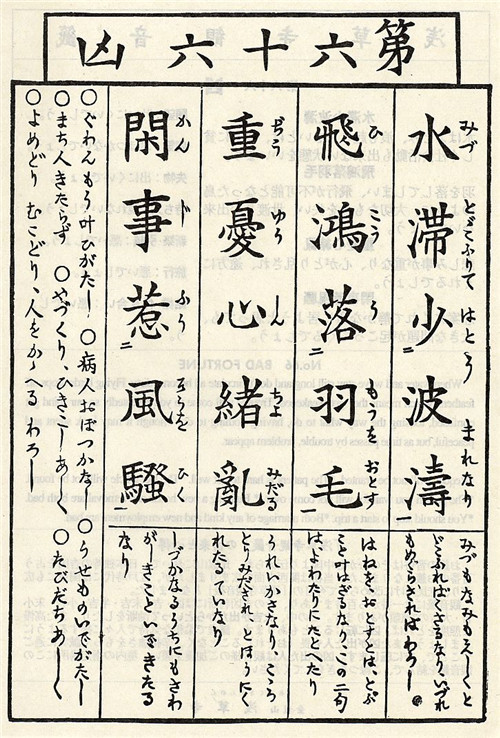 第六十六凶
水滞少波濤
みづ とゞこふりて はとう まれなり
みづもなみもえーくと
どこふればくさるなり、いづれ
もめぐらされば わろし
飛鴻落羽毛
ひ こう う もうを おとす
はねををおとすとは、とぶ
こと叶はざるなり、この二句
はよわたりにたとへたり
重憂心緒亂
ぢう ゆう しん ちよ みだる
うれいかさなり、こゝろ
とりみだされ、とほうにく
れたるていなり
閑事惹風騒
かん じ ふうさうを ひく
しづかなるうちにもさわ
がしきこといできたる
なり
○ぐわんもう叶ひがたし ○病人おぼつかなし ○うせものいでがたし
○まち人きたらず ○やづくり、ひきこしあしく ○たびだちあしく
○よめどり むこどり、人をかゝへる わろし